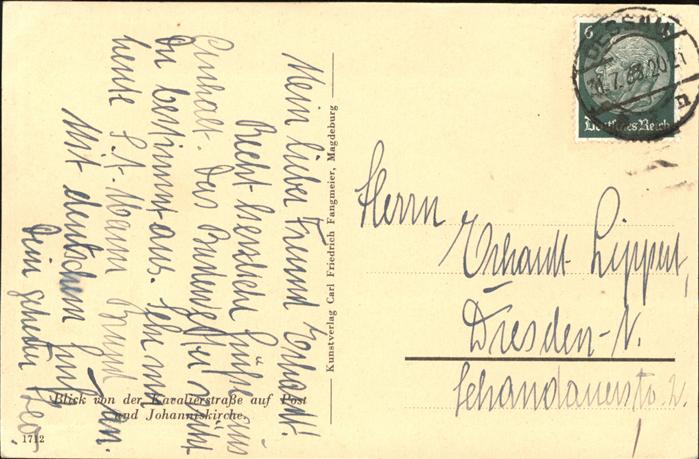 Mein lieber Freund Erhardt!
Recht herzliche Grüße aus
Anhalt. Das
Du bestimmt aus.
heute S.A. Mann
Mit deutschem Gruß
Dein Leo
Kunstverlag Carl Friedrich Fangmeier, Magdeburg
Blick von der Kavalierstraße auf Post
und Johanniskirche.
1712
6
DESSAU
20-21
Deutsches Reich
Herrn
Erhardt Lippert,
Dresden-N.
Schandauerstr. 2.